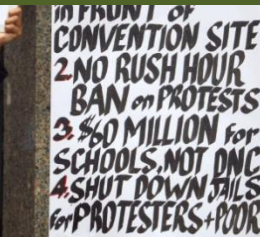 IN FRONT OF
CONVENTION SITE
2. NO RUSH HOUR
BAN on PROTESTS
3. $60 MILLION for
SCHOOLS, NOT DNC
4. SHUT DOWN JAILS
for PROTESTERS + POOR